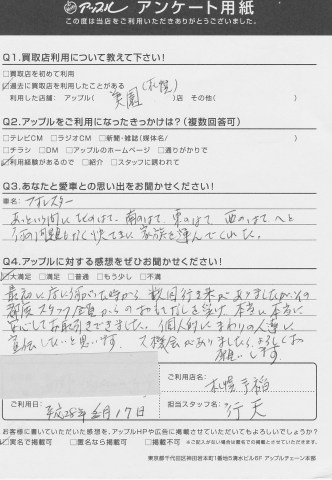 アップル アンケート用紙
この度は当店をご利用いただきありがとうございました。
Q1.買取店利用について教えて下さい!
□買取店を初めて利用
☑過去に買取店を利用したことがある (札幌)
利用した店舗: アップル( 美園 )店 その他( )
Q2.アップルをご利用になったきっかけは?(複数回答可)
□テレビCM □ラジオCM □新聞・雑誌[媒体名/ ]
□チラシ □DM □アップルのホームページ □通りがかりで
☑利用経験があるので □紹介 □スタッフに誘われて
Q3.あなたと愛車との思い出をお聞かせください!
車名: フォレスター
あっという間でしたので、南のはて、東のはて、西のはてへと
何の問題もなく快てきに家族を運んでくれた。
Q4.アップルに対する感想をぜひお聞かせください!
☑大満足 □満足 □普通 □もう少し □不満
最初に店に伺がった時から数回行き来がありましたが、その
都度スタッフ全員からのおもてなしを受け、本当に本当に
安心してお取引きできました。個人的にまわりの人達に
宣伝したいと思います。又機会がありましたらよろしくお
願いします。
ご利用店名:
札幌手稲
ご利用日: 平成28年 月17日
担当スタッフ名: 行天
お客様に書いていただいた感想を、アップルHPや広告に掲載させていただいてもよろしいでしょうか?
☑実名で掲載可 □匿名なら掲載可 □掲載不可 ※ご記入がない場合は匿名での掲載とさせていただきます。
東京都千代田区神田岩本町1番地5清水ビル6F アップルチェーン本部